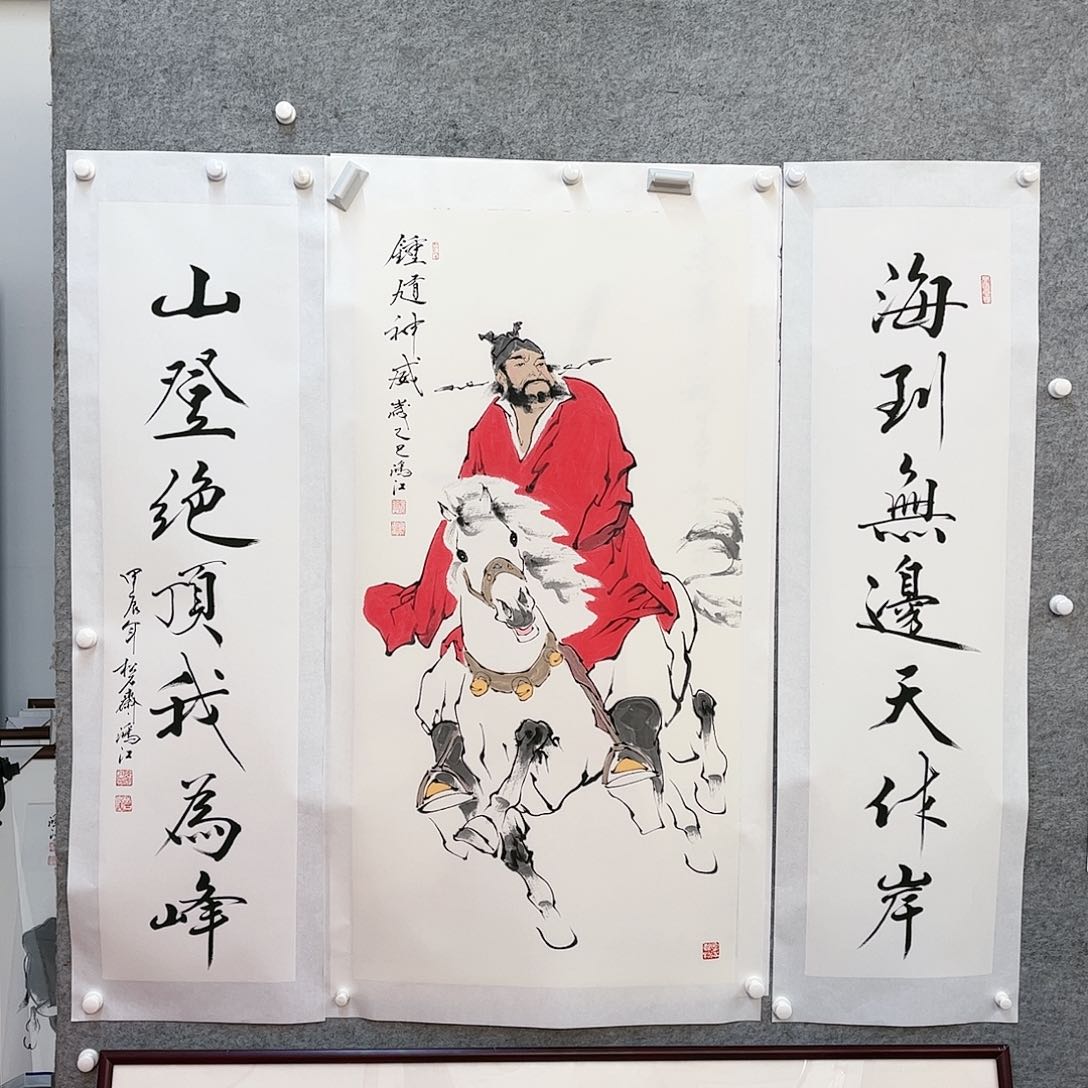 海到無邊天作岸
鍾馗神威
歲乙巳鴻江
山登絶頂我為峰
甲辰年松石齋鴻江